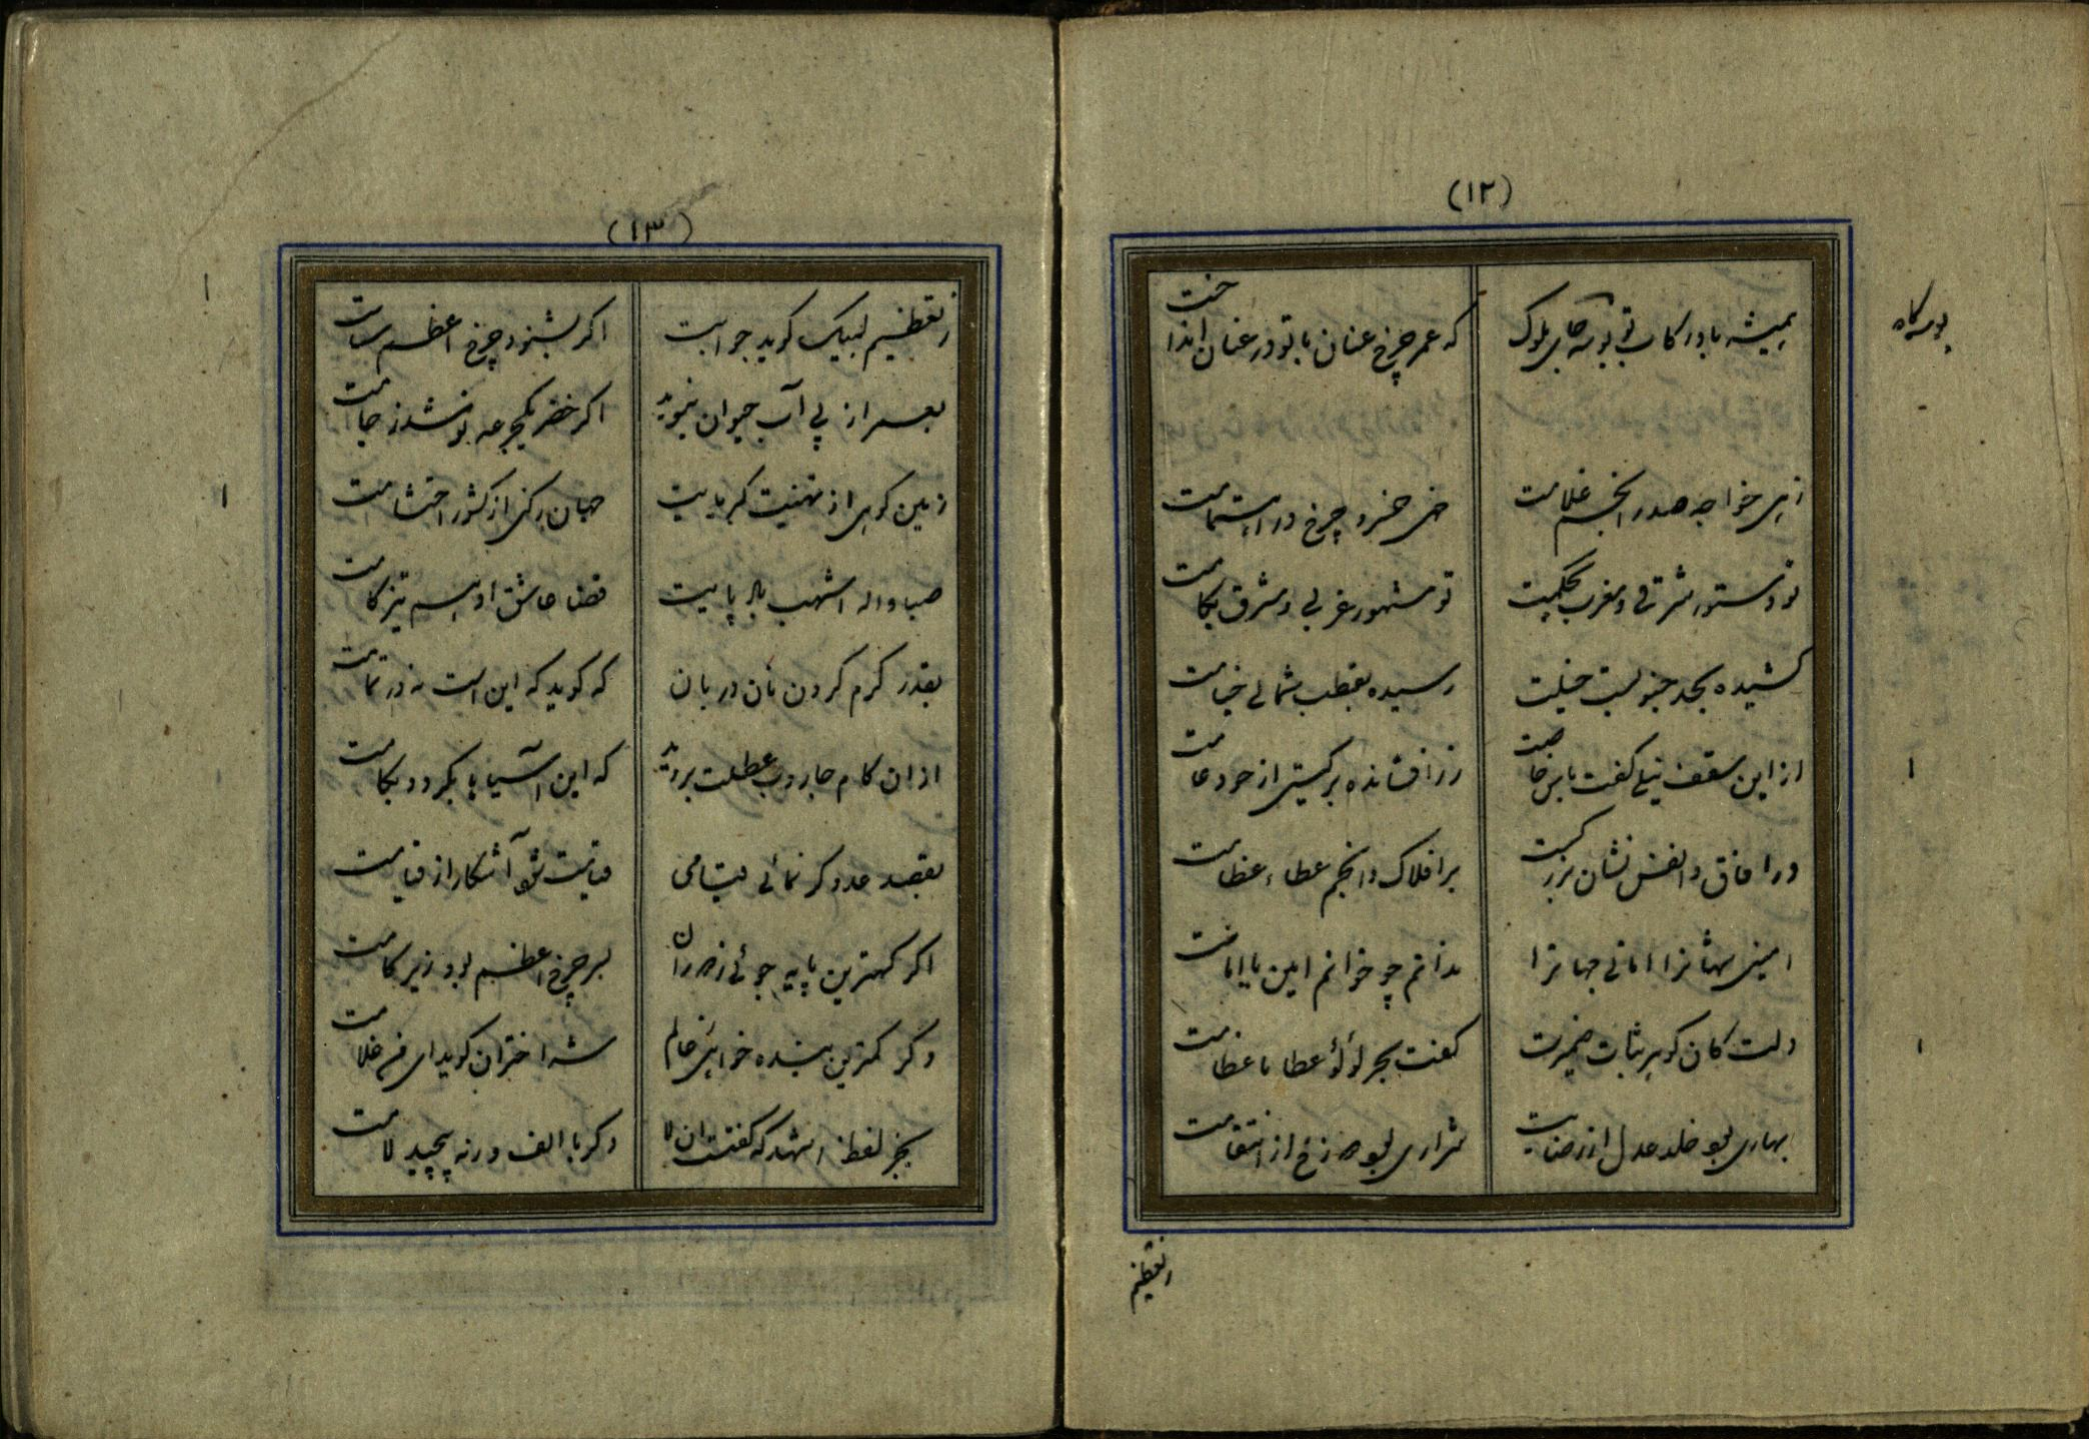 (۱۲)
همیشه باد رکاب تو بوسه جای ملوک
که عمر چرخ عنان با تو در عنان انداخت
بوسه گاه
زهی خواجه صدر انجم غلامت
خهی خسرو چرخ در اهتمامت
تو دستور شرقی و مغرب بحکمت
تو مشهور غربی و مشرق بکامت
کشیده بحد جنوبیت خیلت
رسیده بقطب شمالی خیامت
از این سقف نیلی کفت با من خاصت
زر افشانده بر گیتی از جود عامت
در آفاق و انفس نشان بزرگیت
بر افلاک و انجم عطاء عظامت
امینی جهانرا امانی جهانرا
ندانم چو خوانم امین یا امانت
دلت کان گوهر بنات ضمیرت
کفت بحر لؤلؤ عطایا عظامت
بهاری بود خلد عدل از رضایت
شراری بود دوزخ از انتقامت
زتعظیم
(۱۳)
زتعظیم لبیک گوید جوابت
اگر بشنود چرخ اعظم سلامت
بعمر از پی آب حیوان نپوید
اگر خضر یکجرعه نوشد ز جامت
زمین گوهی از تهنیت کبریایت
جهان رکنی از کشور احتشامت
صبا واله اشهب باد پایت
قضا عاشق ادهم تیز گامت
بقدر کرم کردن نان دربان
که گوید که این است نه در تمامت
از ان کام جاروب عطلت بروید
که این آسیا یا بگردد بکامت
بقصد عدو گر نمائی قیامی
قیامت شود آشکار از قیامت
اگر کهترین پایه جوئی ز دوران
سر چرخ اعظم بود زیر گامت
وگر کمترین بنده خواهی ز عالم
شه اختران گوید ای من غلامت
بجز لفظ اشهد که گفتت ان لا
دگر با الف در نه پیچید لامت